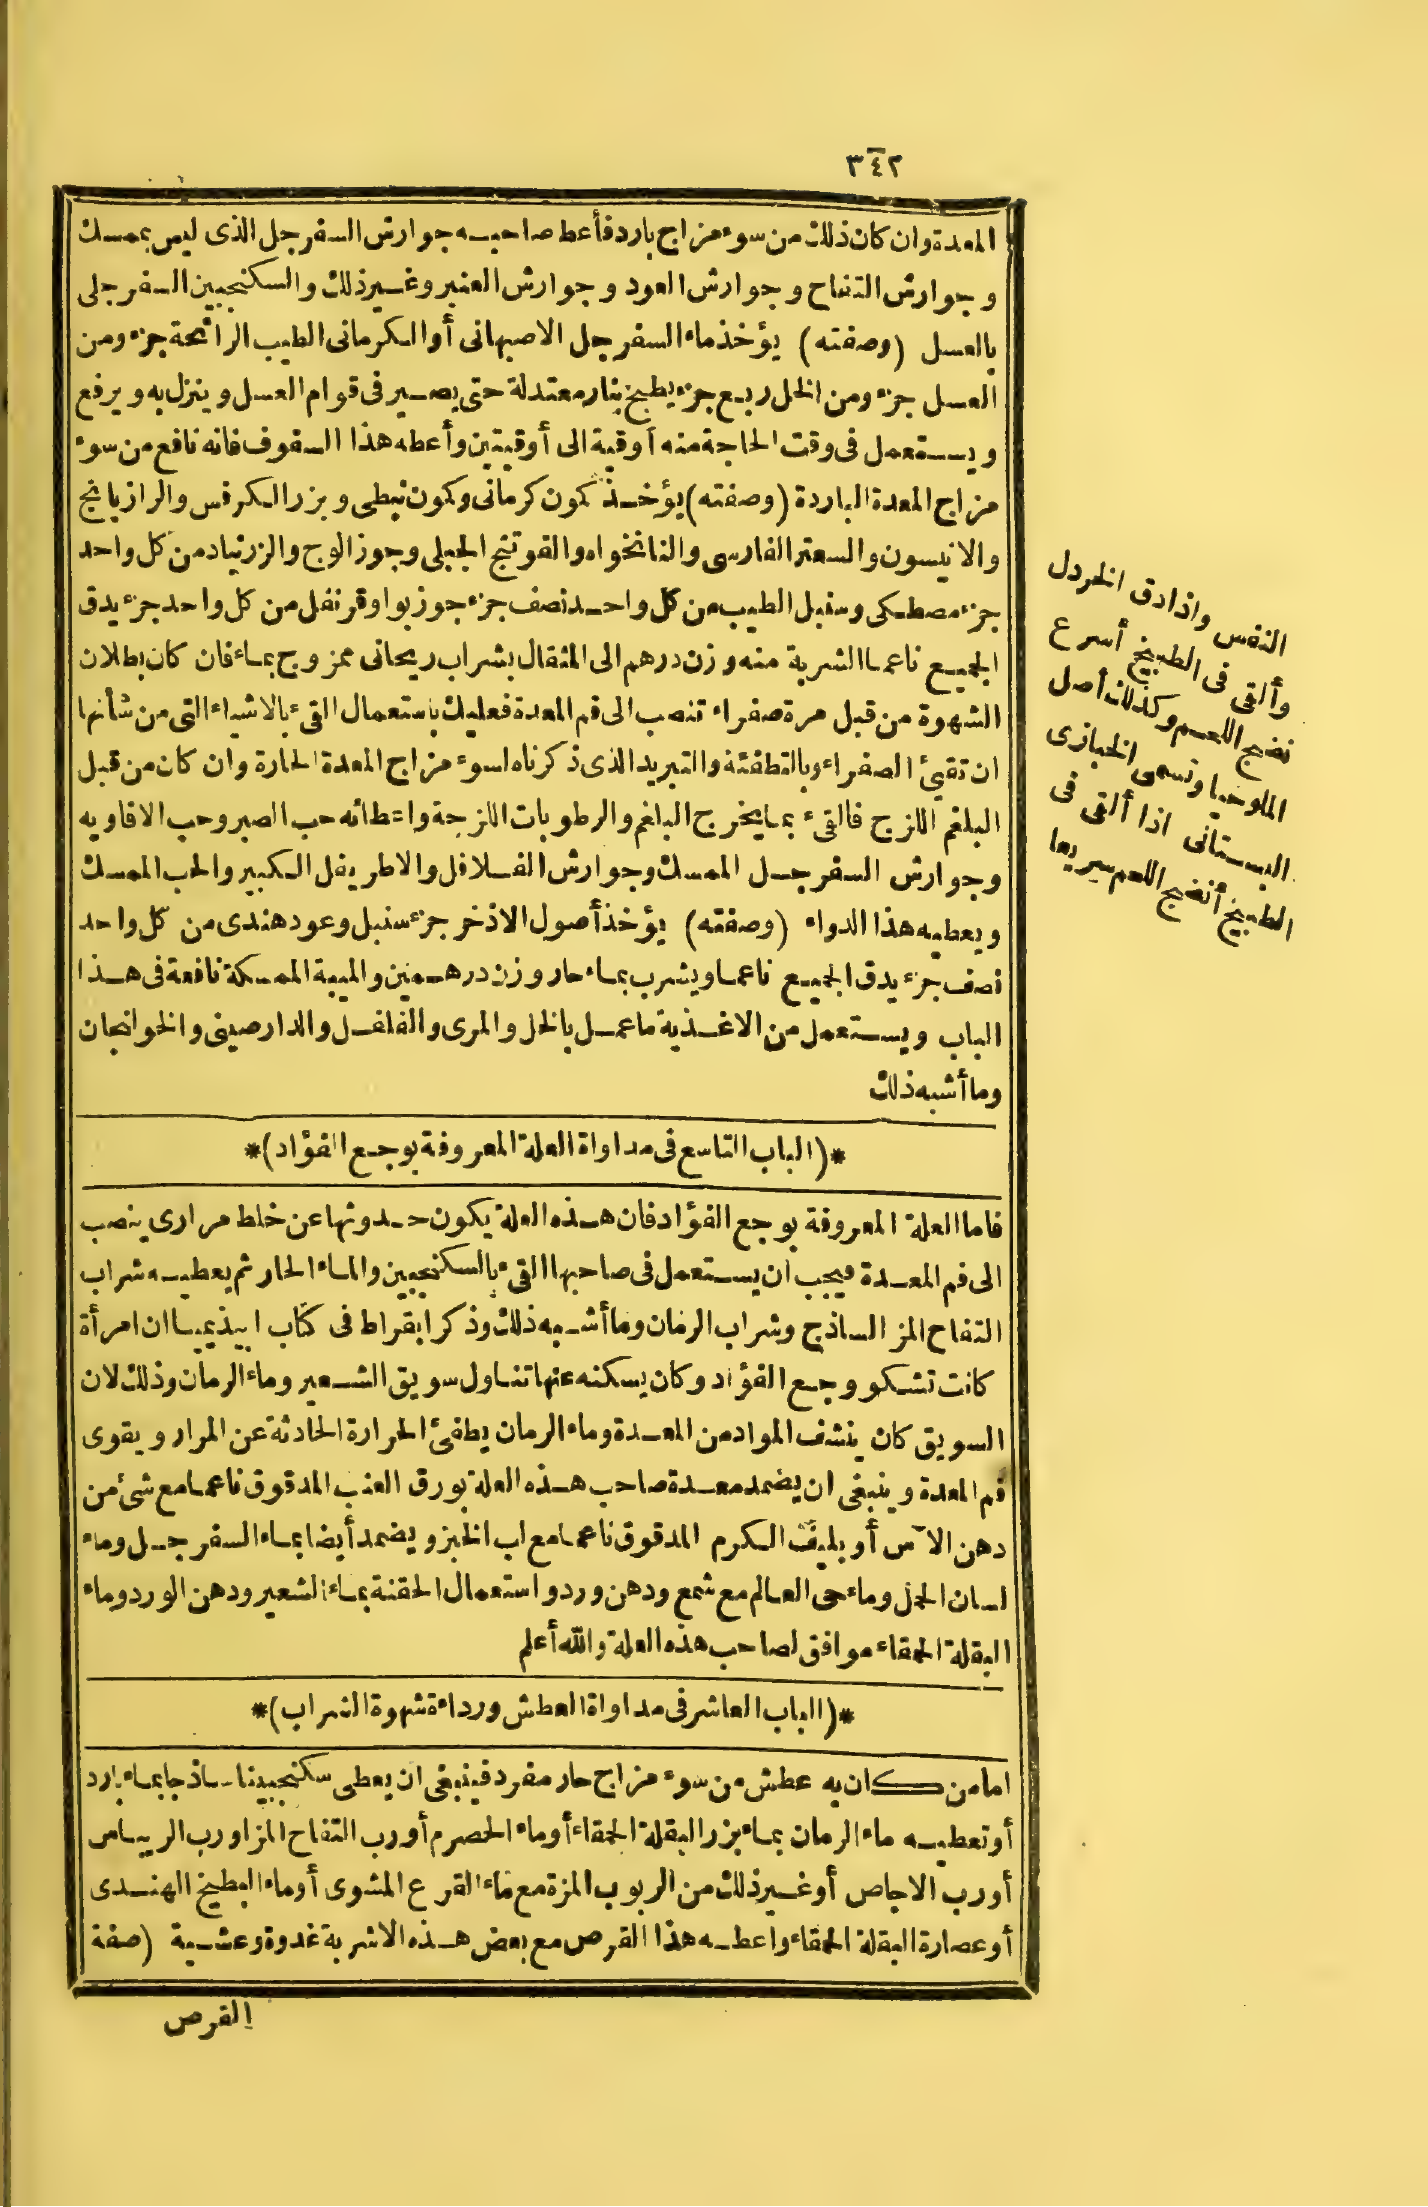 ٣٤٢
المعدة وان كان ذلك من سوء مزاج بارد فأعط صاحبه جوارش السفرجل الذى ليس بممسك
وجوارش التفاح وجوارش العود وجوارش العنبر وغير ذلك والسكنجبين السفرجلى
بالعسل (وصفته) يؤخذ ماء السفرجل الاصبهانى أوالكرمانى الطيب الرائحة جزء ومن
العسل جزء ومن الخل ربع جزء يطبخ بنار معتدلة حتى يصير فى قوام العسل وينزل به ويرفع
ويستعمل فى وقت الحاجة منه أوقية الى أوقيتين وأعطه هذا السفوف فانه نافع من سوء
مزاج المعدة الباردة (وصفته) يؤخذ كمون كرمانى وكمون نبطى وبزر الكرفس والرازيانج
والانيسون والسعتر الفارسى والنانخواه والفوتنج الجبلى وجوز الوج والزرنباد من كل واحد
جزء مصطكى وسنبل الطيب من كل واحد نصف جزء جوز بوا وقرنفل من كل واحد جزء يدق
الجميع ناعما الشربة منه وزن درهم الى المثقال بشراب ريحانى ممزوج بماء فان كان بطلان
الشهوة من قبل مرة صفراء تنصب الى فم المعدة فعليك باستعمال القىء بالاشياء التى من شأنها
ان تقيئ الصفراء وبالتطفئة والتبريد الذى ذكرناه لسوء مزاج المعدة الحارة وان كان من قبل
البلغم اللزج فالقىء بما يخرج البلغم والرطوبات اللزجة واعطائه حب الصبر وحب الافاويه
وجوارش السفرجل الممسك وجوارش الفلافل والاطريفل الكبير والحب الممسك
ويعطيه هذا الدواء (وصفته) يؤخذ أصول الاذخر جزء سنبل وعود هندى من كل واحد
نصف جزء يدق الجميع ناعما ويشرب بماء حار وزن درهمين والميبة الممسكة نافعة فى هذا
الباب ويستعمل من الاغذية ما عمل بالخل والمرى والفلفل والدارصينى والخولنجان
وما أشبه ذلك
*(الباب التاسع فى مداواة العلة المعروفة بوجع الفؤاد)*
فاما العلة المعروفة بوجع الفؤاد فان هذه العلة يكون حدوثها عن خلط مرارى ينصب
الى فم المعدة فيجب ان يستعمل فى صاحبها القىء بالسكنجبين والماء الحار ثم يعطيه شراب
التفاح المز الساذج وشراب الرمان وما أشبه ذلك وذكر ابقراط فى كتاب ابيذيميا ان امرأة
كانت تشكو وجع الفؤاد وكان يسكنه عنها تناول سويق الشعير وماء الرمان وذلك لان
السويق كان ينشف المواد من المعدة وماء الرمان يطفئ الحرارة الحادثة عن المرار ويقوى
فم المعدة وينبغى ان يضمد معدة صاحب هذه العلة بورق العنب المدقوق ناعما مع شئ من
دهن الآس أو بليف الكرم المدقوق ناعما مع لب الخبز ويضمد أيضا بماء السفرجل وماء
لسان الحمل وماء حى العالم مع شمع ودهن ورد واستعمال الحقنة بماء الشعير ودهن الورد وماء
البقلة الحمقاء موافق لصاحب هذه العلة والله أعلم
*(الباب العاشر فى مداواة العطش ورداءة شهوة الشراب)*
اما من كان به عطش من سوء مزاج حار مفرد فينبغى ان يعطى سكنجبينا ساذجا بماء بارد
أو تعطيه ماء الرمان بماء بزر البقلة الحمقاء أو ماء الحصرم أو رب التفاح المز او رب الريباس
أو رب الاجاص أو غير ذلك من الربوب المزة مع ماء القرع المشوى أو ماء البطيخ الهندى
أو عصارة البقلة الحمقاء واعطه هذا القرص مع بعض هذه الاشربة غدوة وعشية (صفة
القرص
النفس واذا دق الخردل
وألقى فى الطبيخ أسرع
نضج اللحم وكذلك أصل
الملوخيا وتسمى الخبازى
البستانى اذا ألقى فى
الطبيخ أنضج اللحم سريعا